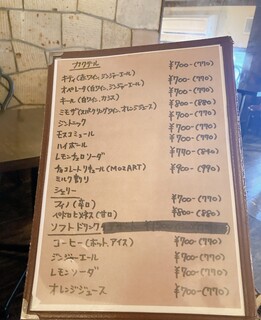 カクテル
キティ(赤ワイン、ジンジャーエール) ¥700-(770)
オペレーター(白ワイン、ジンジャーエール) ¥700-(770)
キール(白ワイン、カシス) ¥700-(770)
ミモザ(スパークリングワイン、オレンジジュース) ¥800-(880)
ジントニック ¥700-(770)
モスコミュール ¥700-(770)
ハイボール ¥700-(770)
レモンチェッロソーダ
チョコレートリキュール(MOZART)
ミルク割り
シェリー
フィノ(辛口) ¥700-(770)
ペドロヒメネス(甘口) ¥800-(880)
ソフトドリンク
コーヒー(ホット、アイス) ¥700-(770)
ジンジャーエール ¥700-(770)
レモンソーダ
オレンジジュース ¥700-(770)